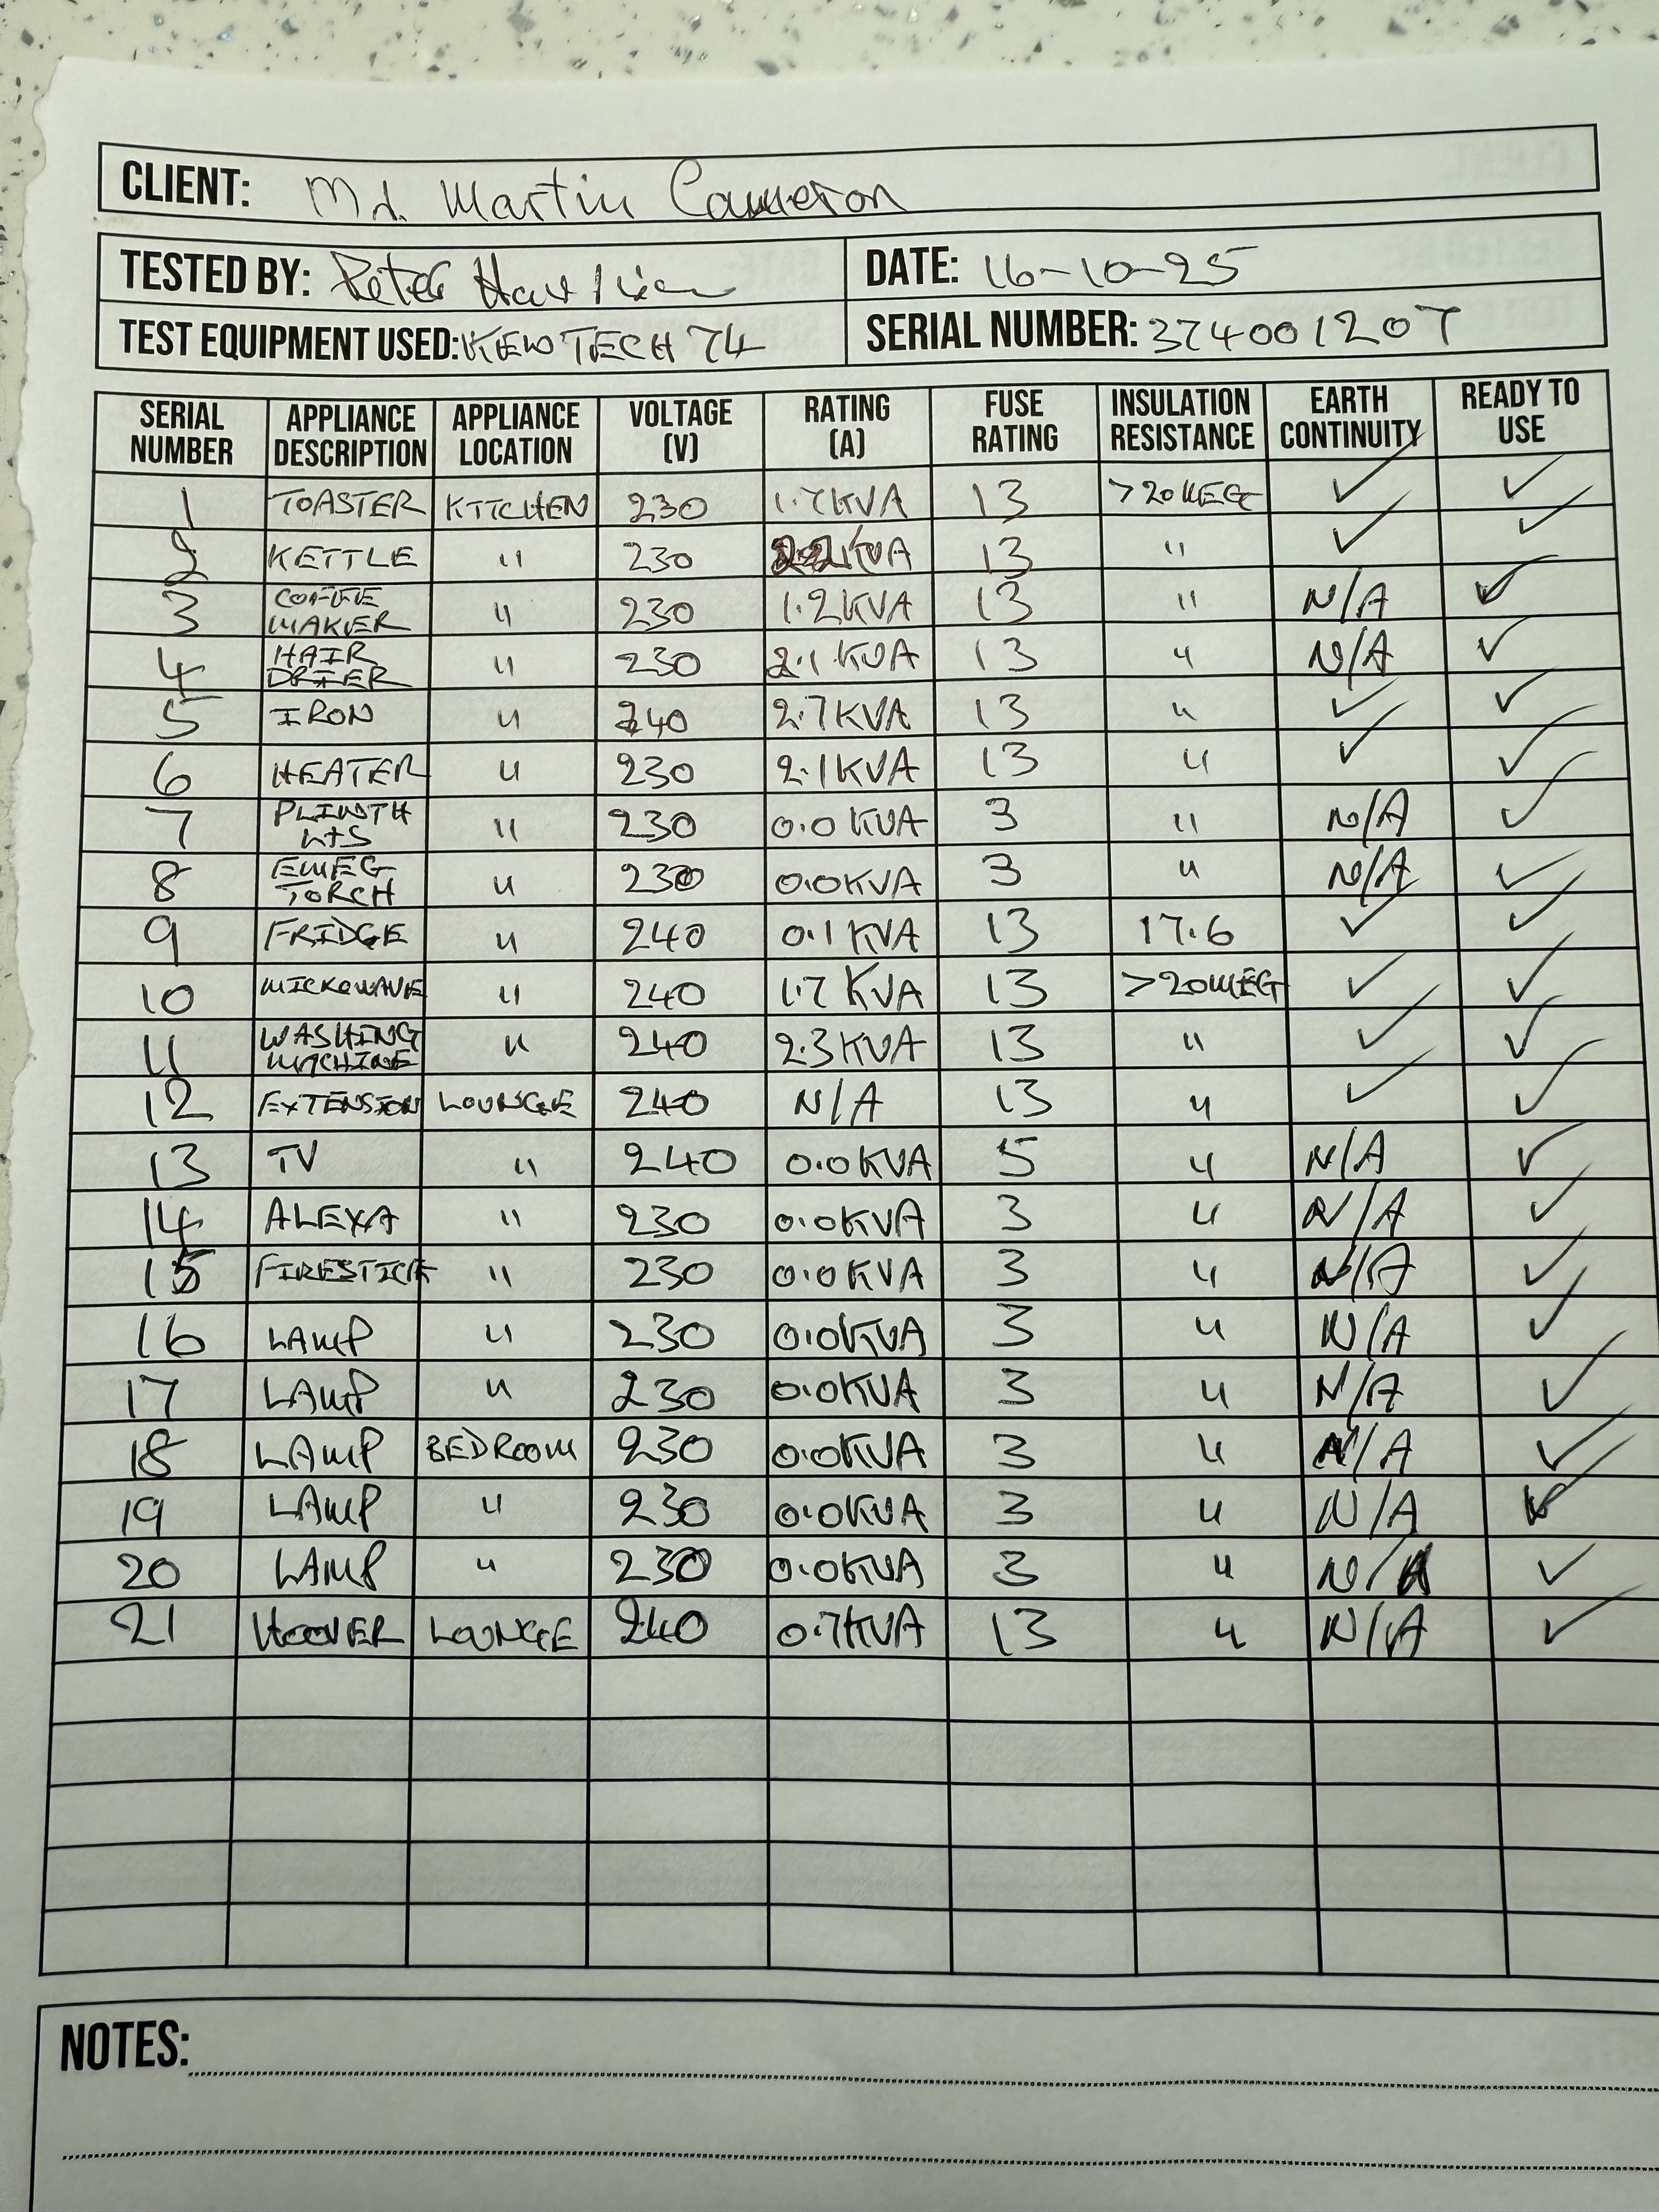 CLIENT: Mr. Martin Cameron
TESTED BY: Peter
DATE: 16-10-25
TEST EQUIPMENT USED: KEWTECH 74
SERIAL NUMBER: 374001207
SERIAL NUMBER APPLIANCE DESCRIPTION APPLIANCE LOCATION VOLTAGE (V) RATING (A) FUSE RATING INSULATION RESISTANCE EARTH CONTINUITY READY TO USE
1 TOASTER KITCHEN 230 1.7KVA 13 >20MEG ✓ ✓
2 KETTLE " 230 2.2KVA 13 " ✓ ✓
3 COFFEE MAKER " 230 1.2KVA 13 " N/A ✓
4 HAIR DRIER " 230 2.1 KVA 13 " N/A ✓
5 IRON " 240 2.7KVA 13 " ✓ ✓
6 HEATER " 230 2.1KVA 13 " ✓ ✓
7 PLINTH LTS " 230 0.0 KVA 3 " N/A ✓
8 EMEG TORCH " 230 0.0KVA 3 " N/A ✓
9 FRIDGE " 240 0.1 KVA 13 17.6 ✓ ✓
10 MICROWAVE " 240 1.7 KVA 13 >20MEG ✓ ✓
11 WASHING MACHINE " 240 2.3KVA 13 " ✓ ✓
12 EXTENSION LOUNGE 240 N/A 13 " ✓ ✓
13 TV " 240 0.0KVA 5 " N/A ✓
14 ALEXA " 230 0.0KVA 3 " N/A ✓
15 FIRESTICK " 230 0.0KVA 3 " N/A ✓
16 LAMP " 230 0.0KVA 3 " N/A ✓
17 LAMP " 230 0.0KVA 3 " N/A ✓
18 LAMP BEDROOM 230 0.0KVA 3 " N/A ✓
19 LAMP " 230 0.0KVA 3 " N/A ✓
20 LAMP " 230 0.0KVA 3 " N/A ✓
21 HOOVER LOUNGE 240 0.7KVA 13 " N/A ✓
NOTES: